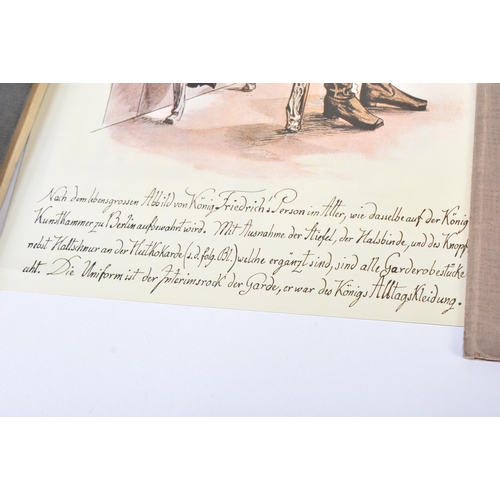 Nach dem lebensgrossen Abbild von König Friedrich's Person im Alter, wie dasselbe auf der König
Kunstkammer zu Berlin aufbewahrt wird. Mit Ausnahme der Stiefel, der Halsbinde, und des Knopf
nebst Haltschnur an der Hutkokarde (s. d. folg. Bl.) welche ergänzt sind, sind alle Garderobestücke
echt. Die Uniform ist der Interimsrock der Garde, er war des Königs Alltagskleidung.